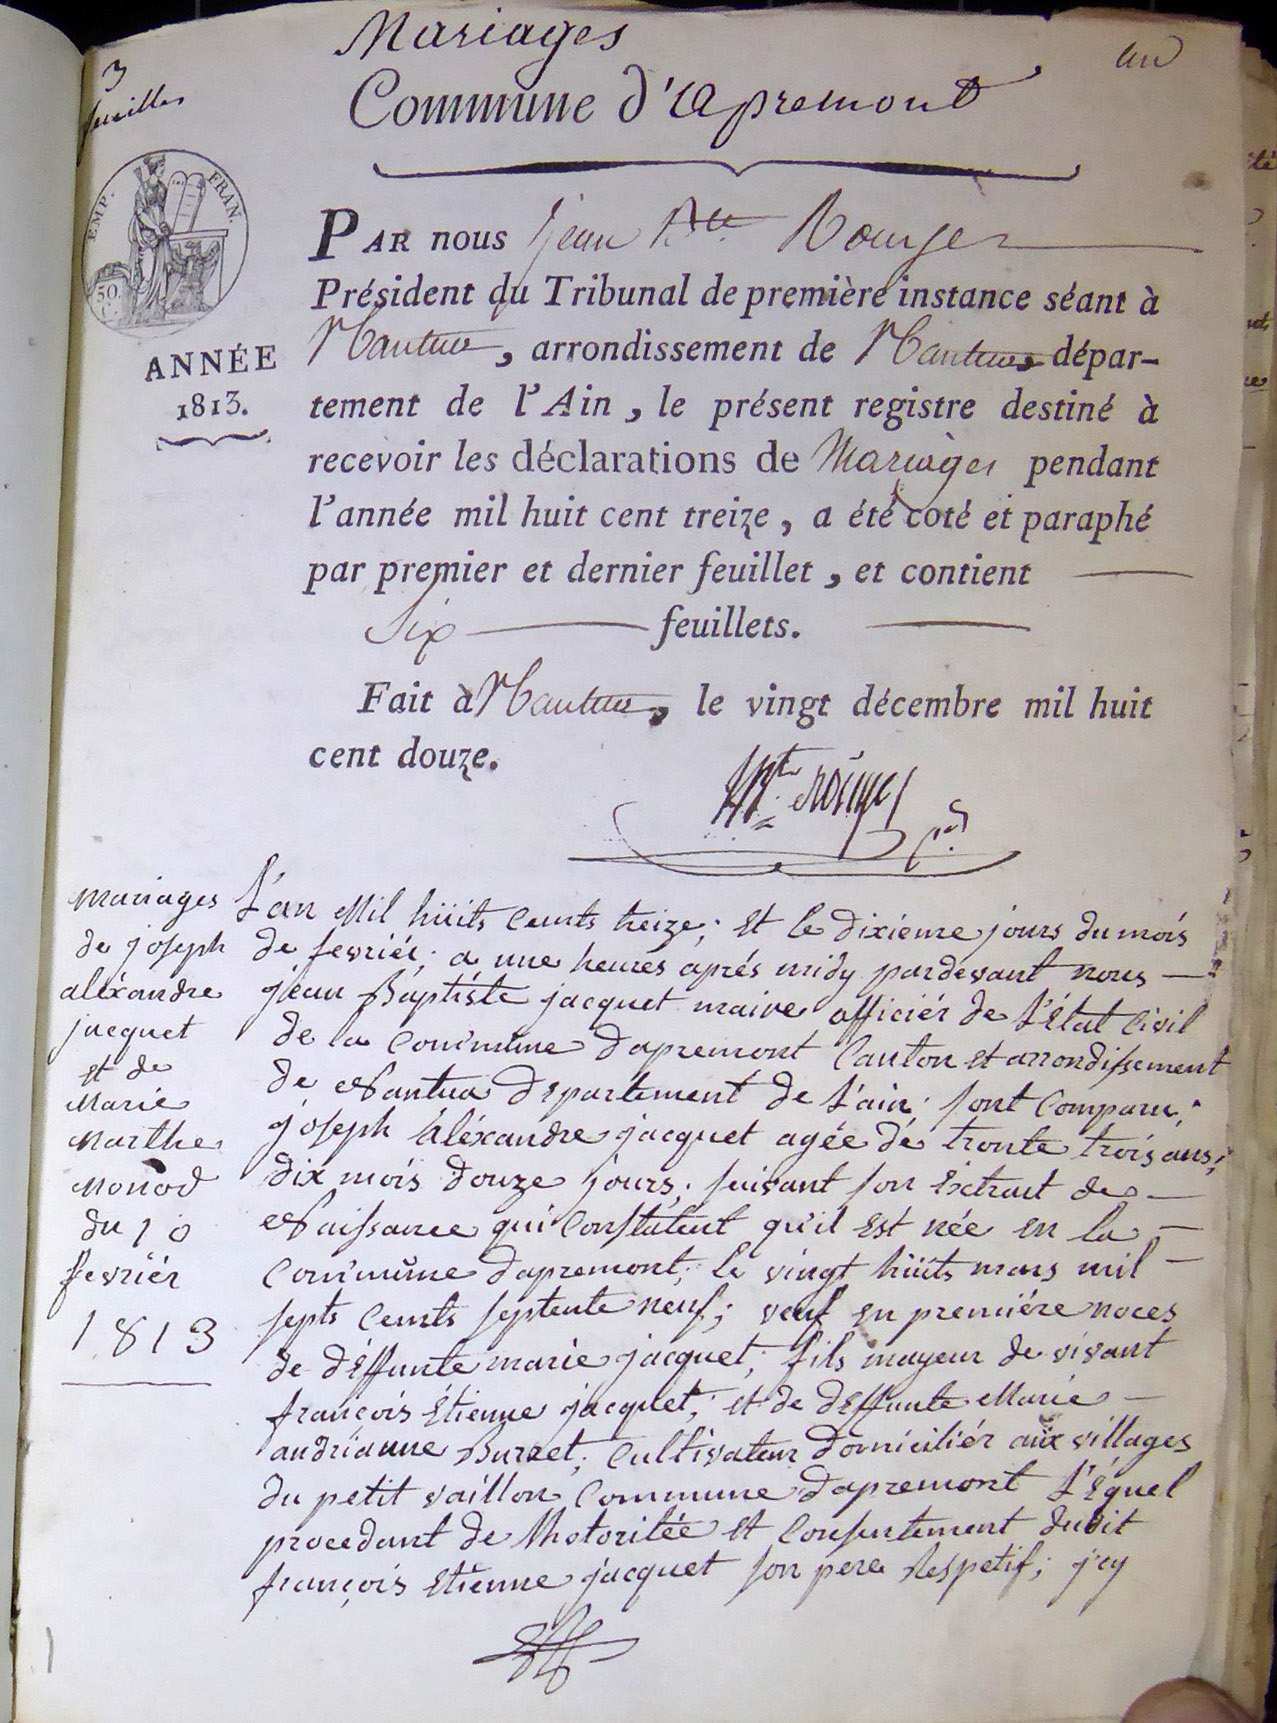 3
feuilles
Mariages
un
Commune d'apremont
EMP. FRAN.
50.
C.
ANNÉE
1813.
PAR nous jean Bte. Rouyer
Président du Tribunal de première instance séant à
Nantua, arrondissement de Nantua, dépar-
tement de l'Ain, le présent registre destiné à
recevoir les déclarations de Mariages pendant
l'année mil huit cent treize, a été coté et paraphé
par premier et dernier feuillet, et contient
Six feuillets.
Fait à Nantua, le vingt décembre mil huit
cent douze.
mariages
de joseph
aléxandre
jacquet
et de
Marie
Marthe
Monod
du 10
fevriér
1813
L'an Mil hüits Cents treize; Et le dixieme jours du mois
de fevriér; a une heures aprés midy pardevant nous
jean Baptiste jacquet maire officiér de L'État Civil
de la Commune dapremont Canton et arrondissement
de Nantua Departement de L'ain; sont Comparu;
joseph Aléxandre jacquet agée de trente trois ans;
dix mois douze jours; suivant son Extrait de
Naissance qui Constatent qu'il Est née en la
Commune dapremont; Le vingt hüits mars mil
septs Cents septente neuf; veuf en premiére noces
de déffunte marie jacquet; fils mayeur de vivant
françois Étienne jacquet; et de deffunte Marie
andrianne Burret; Cultivateur domiciliér aux villages
du petit vaillon Commune dapremont L'équel
procedant de Lhotoritée et Consentement dudit
françois Etienne jacquet son pere Respetif; jcy